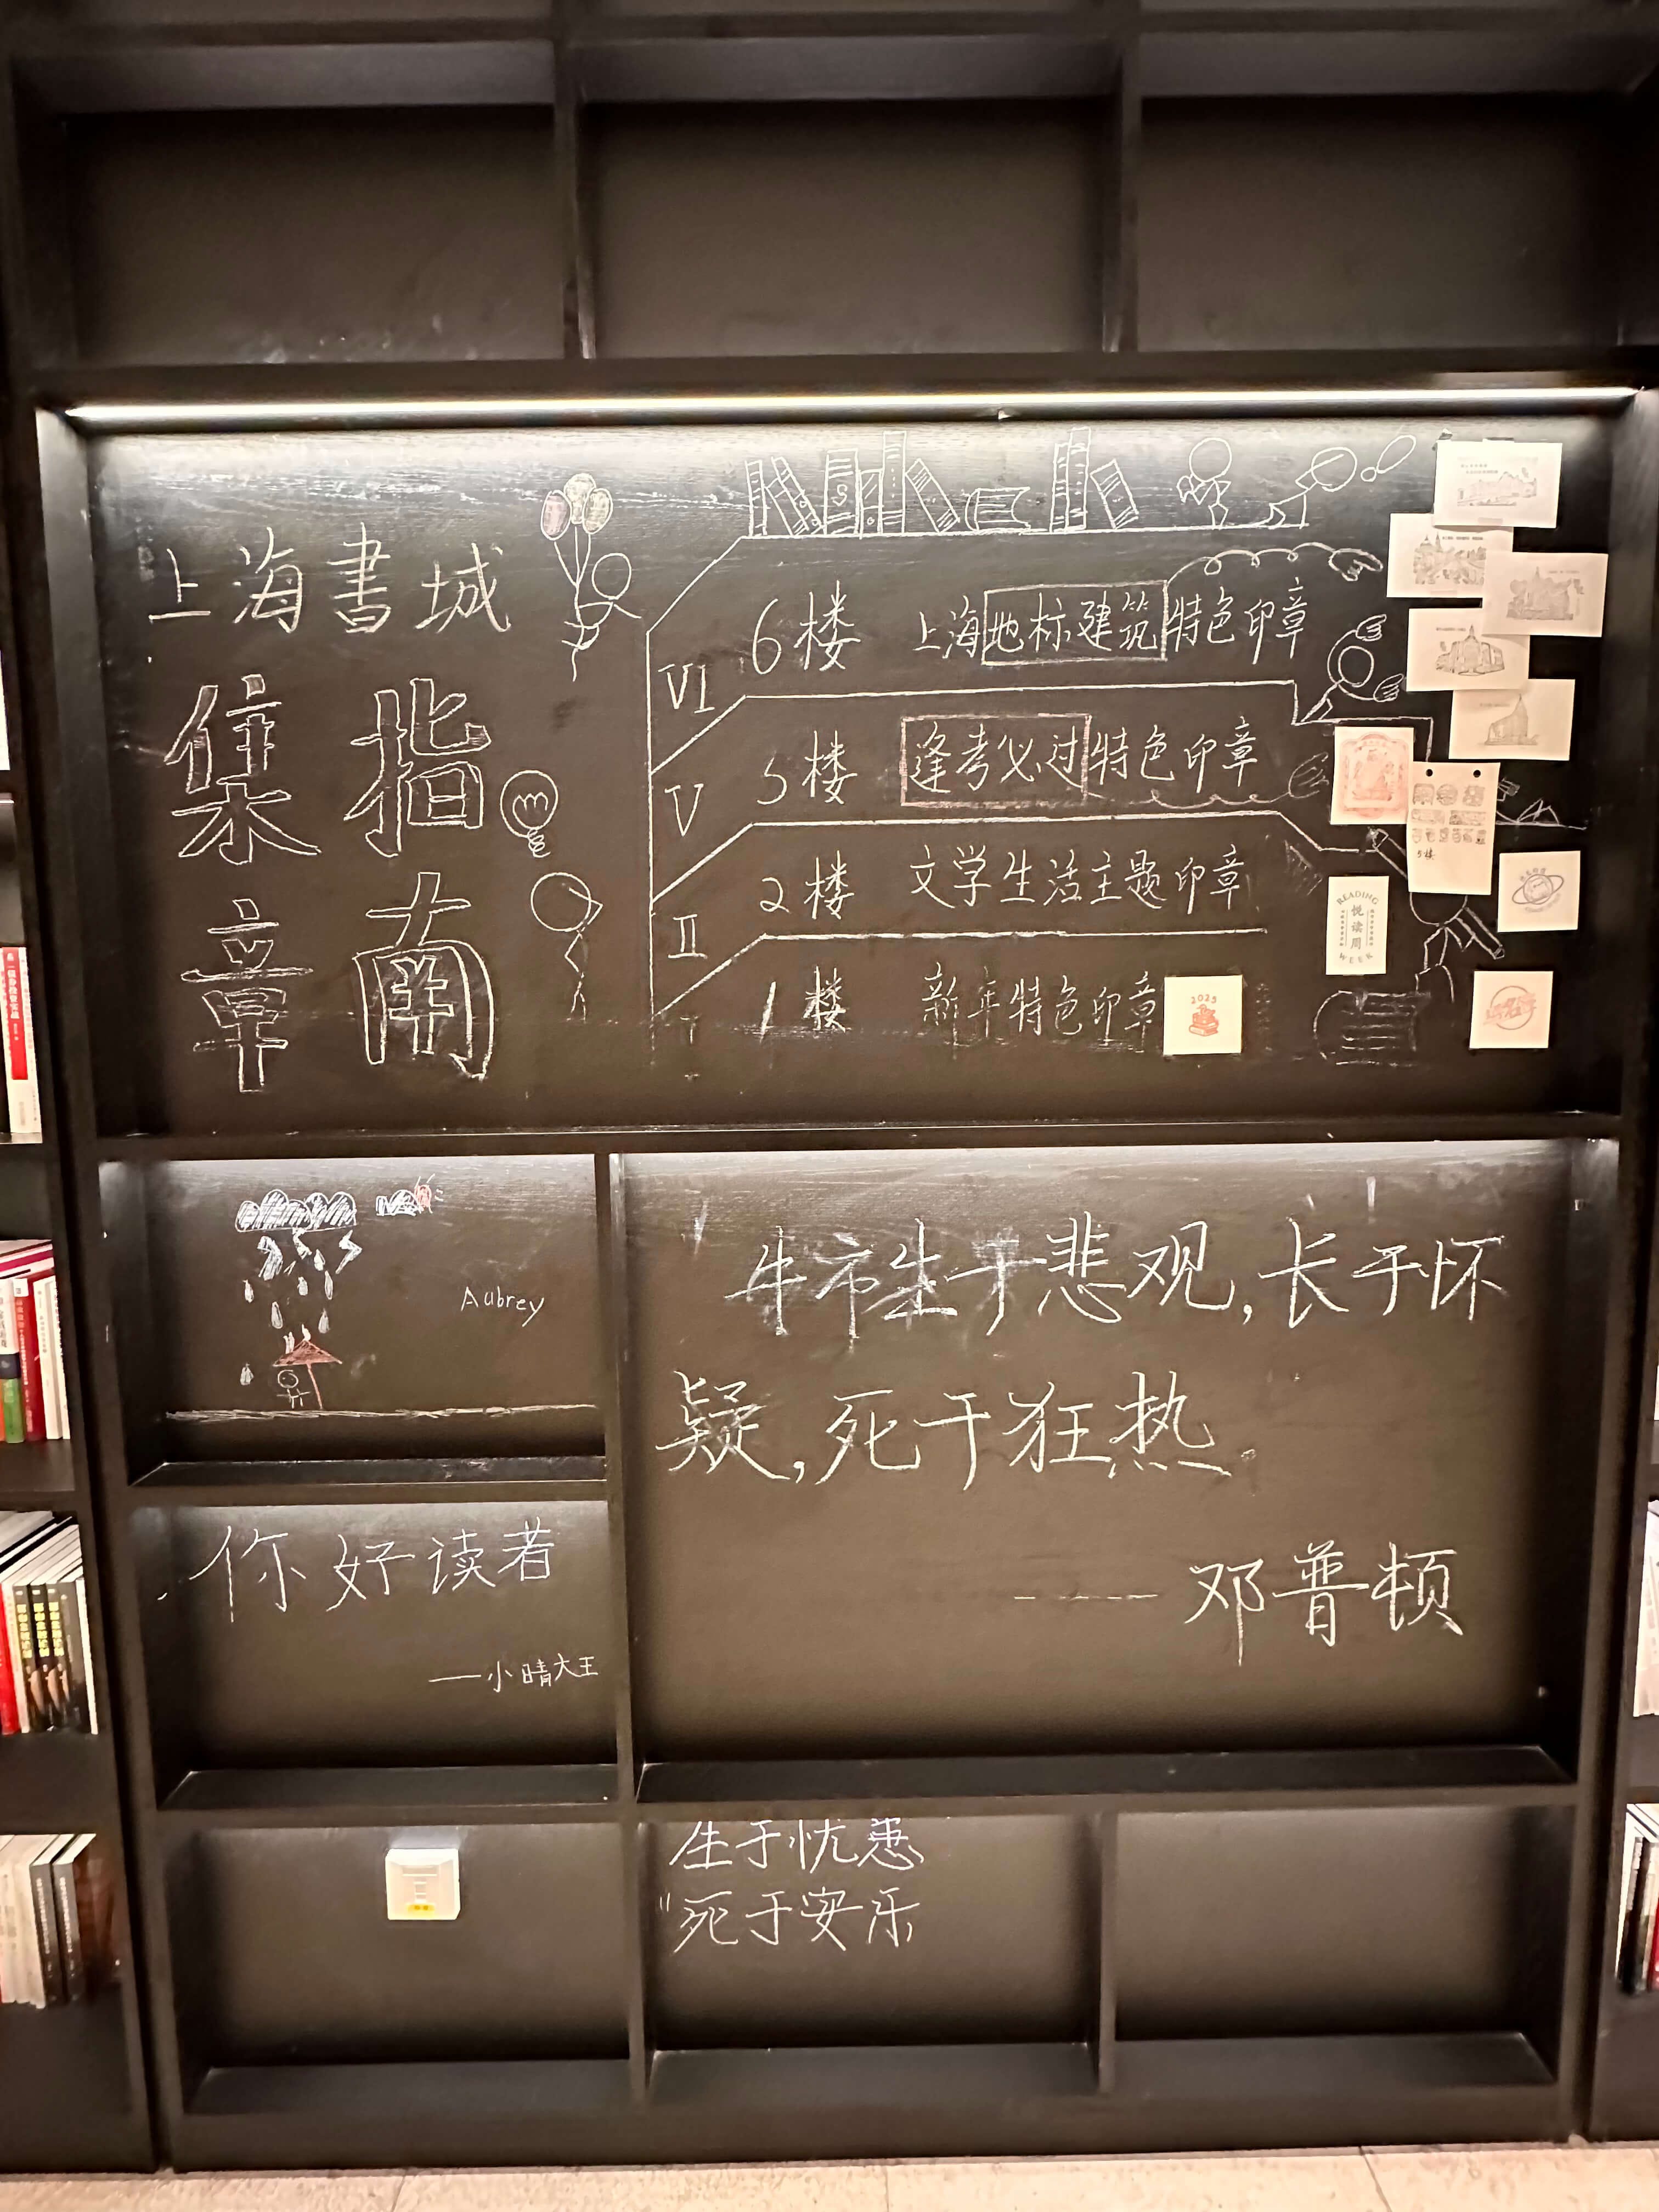 上海書城
集章
指南
VI 6楼 上海地标建筑特色印章
V 5楼 逢考必过特色印章
II 2楼 文学生活主题印章
I 1楼 新年特色印章
2025
5楼
READING
悦读周
WEEK
Aubrey
牛市生于悲观,长于怀
疑,死于狂热。
---- 邓普顿
你好读者
——小晴大王
生于忧患
"死于安乐